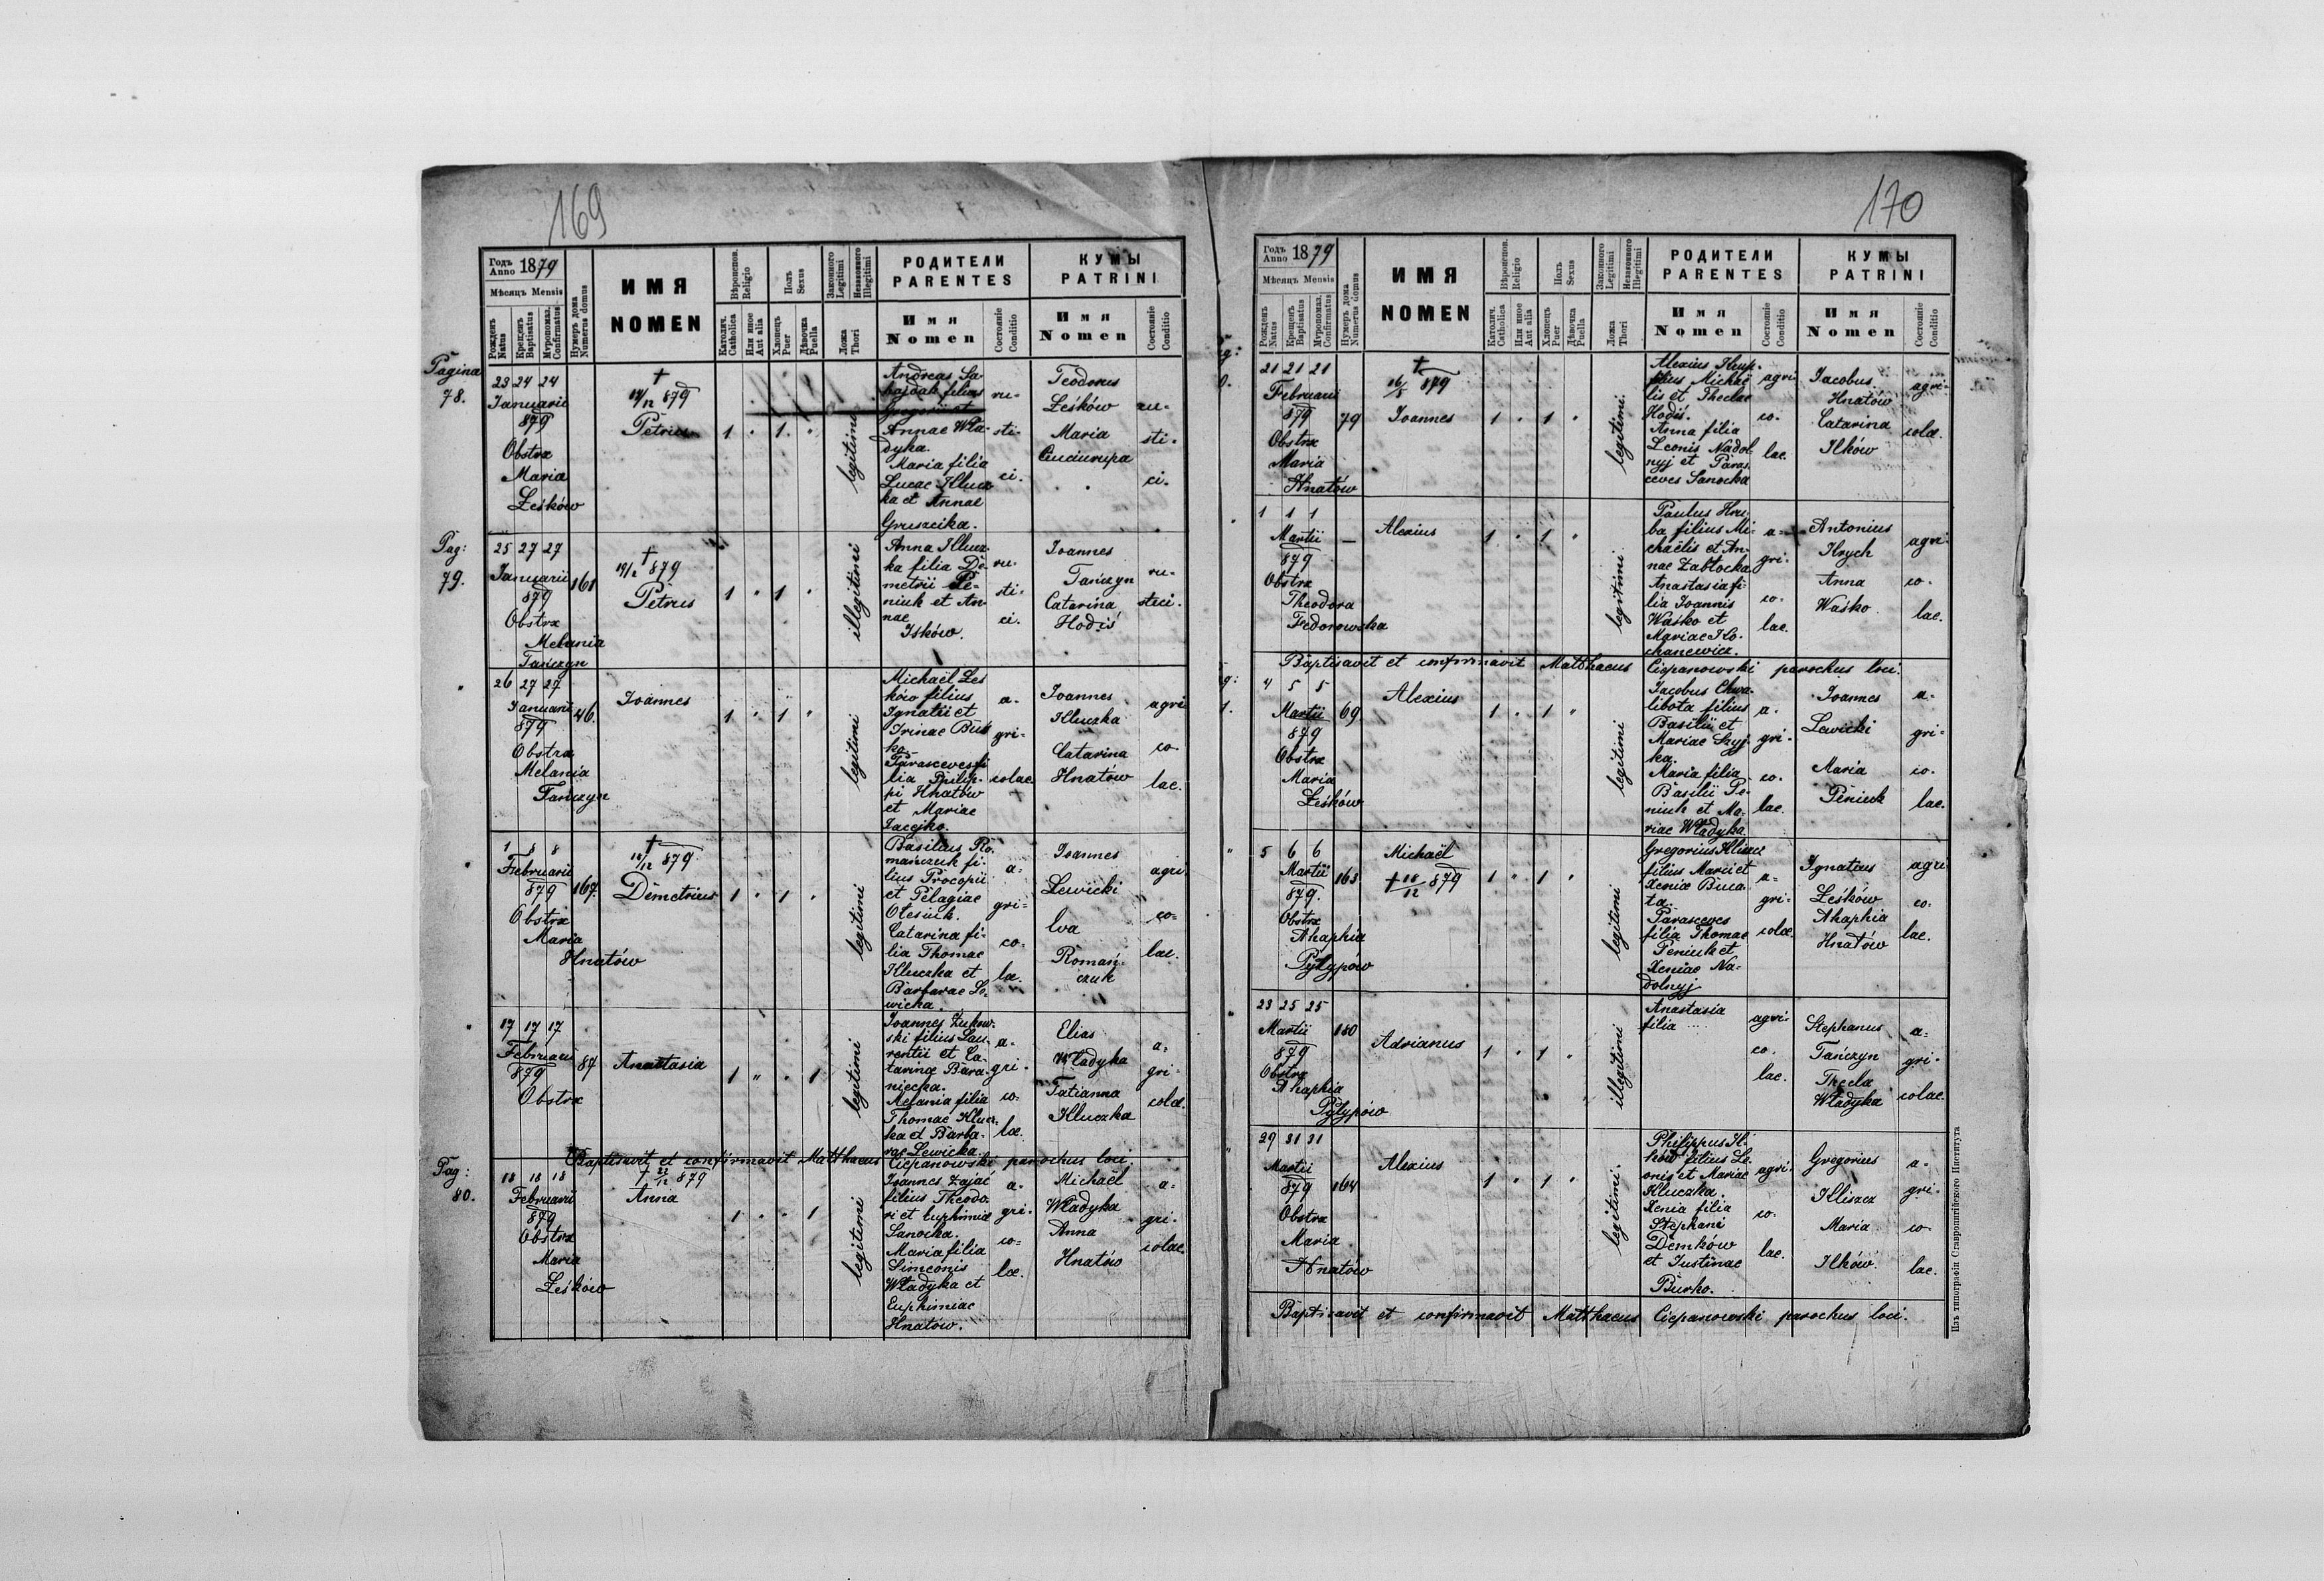 169
Годъ Anno 1879
Мѣсяцъ Mensis
Рожденъ Natus
Крещенъ Baptisatus
Мѵропомаз. Confirmatus
Нумеръ дома Numerus domus
ИМЯ NOMEN
Вѣроисповѣд. Religio
Католич. Catholica
Или иное Aut alia
Полъ Sexus
Хлопецъ Puer
Дѣвочка Puella
Законного Legitimi
Незаконного Illegitimi
Ложа Thori
РОДИТЕЛИ PARENTES
Имя Nomen
Состояніе Conditio
КУМЫ PATRINI
Имя Nomen
Состояніе Conditio
Pagina 78.
23 24 24
Januarii
879
Obstrx
Maria
Leśków
†
879
Petrus
1 " 1 "
legitimi
Andreas Sa-
hajdak filius
Gregorii et
Annae Wła-
dyka.
Maria filia
Lucae Klucz-
ka et Annae
Gruszcika.
ru-
sti-
ci.
Teodorus
Leśków
Maria
Cuciurupa
ru-
sti-
ci.
Pag: 79.
25 27 27
Januarii
879
161
Obstrx
Melania
Tańczyn
†
19/2 879
Petrus
1 " 1 "
illegitimi
Anna Klucz-
ka filia De-
metrii Pe-
niuk et An-
nae
Iśków.
ru-
sti-
ci.
Joannes
Tańczyn
Catarina
Hodiś
ru-
stici.
26 27 27
Januarii
879
46.
Obstrx
Melania
Tańczyn
Joannes
1 " 1 "
legitimi
Michaël Les
ków filius
Ignatii et
Irinae Bus
ko-
Parasceves fi
lia Philip-
pi Hnatów
et Mariae
Zacejko.
a-
gri-
colae
Joannes
Kluczka
Catarina
Hnatów
agri
co-
lae.
1 8 8
Februarii
879
167.
Obstrx
Maria
Hnatów
†
18/12 879
Demetrius
1 " 1 "
legitimi
Basilius Ro-
mańczuk fi-
lius Procopii
et Pelagiae
Olesiuk.
Catarina fi-
lia Thomae
Kluczka et
Barbarae Le-
wicka.
a-
gri-
co-
lae.
Joannes
Lewicki
Eva
Romań-
czuk
agri
co-
lae.
17 17 17
Februarii
879
87
Obstrx
Anastasia
1 " " 1
legitimi
Joannes Żukow-
ski filius Lau-
rentii et Ca-
tarinae Bara-
niecka.
Melania filia
Thomae Klucz-
ka et Barba-
rae Lewicka.
a-
gri-
co-
lae.
Elias
Władyka
Tatianna
Kluczka
a-
gri-
colae.
Baptisavit et confirmavit Matthaeus Ciepanowski parochus loci.
Pag: 80.
18 18 18
Februarii
879
Obstrx
Maria
Leśków
† 22/12 879
Anna
1 " " 1
legitimi
Joannes Zając
filius Theodo-
ri et Euphimiae
Sanocka.
Maria filia
Simeonis
Władyka et
Euphimiae
Hnatów.
a-
gri-
co-
lae.
Michaël
Władyka
Anna
Hnatów
a-
gri-
colae.
170
Годъ Anno 1879
Мѣсяцъ Mensis
Рожденъ Natus
Крещенъ Baptisatus
Мѵропомаз. Confirmatus
Нумеръ дома Numerus domus
ИМЯ NOMEN
Вѣроисповѣд. Religio
Католич. Catholica
Или иное Aut alia
Полъ Sexus
Хлопецъ Puer
Дѣвочка Puella
Законного Legitimi
Незаконного Illegitimi
Ложа Thori
РОДИТЕЛИ PARENTES
Имя Nomen
Состояніе Conditio
КУМЫ PATRINI
Имя Nomen
Состояніе Conditio
21 21 21
Februarii
879
79
Obstrx
Maria
Hnatów
†
16/8 879
Joannes
1 " 1 "
legitimi.
Alexius
filius Michaë
lis et Theclae
Hodiś.
Anna filia
Leonis Nadol
nyj et Paras
ceves Sanocka
agri
co-
lae.
Jacobus
Hnatów
Catarina
Ilków
agri-
colae.
1 1 1
Martii
879
—
Obstrx
Theodora
Fedorowska
Alexius
1 " 1 "
legitimi.
Paulus Hru-
ba filius Mi-
chaëlis et An-
nae Zabłocka
Anastasia fi-
lia Joannis
Waśko et
Mariae Ko-
chanewicz.
a-
gri-
co-
lae.
Antonius
Hrych
Anna
Waśko
agri-
co-
lae.
Baptisavit et confirmavit Matthaeus Ciepanowski parochus loci.
4 5 5
Martii
879
69
Obstrx
Maria
Leśków
Alexius
1 " 1 "
legitimi
Jacobus Chwa-
libota filius
Basilii et
Mariae Szyj-
ka.
Maria filia
Basilii Pe-
niuk et Ma-
riae Władyka
a-
gri-
co-
lae.
Joannes
Lewicki
Maria
Peniuk
a-
gri-
co-
lae.
5 6 6
Martii
879.
163
Obstrx
Ahaphia
Pyłypów
Michaël
† 18/12 879
1 " 1 "
legitimi
Gregorius Kliszcz
filius Marci et
Xeniae Buca-
ta.
Parasceves
filia Thomae
Peniuk et
Xeniae Na-
dolnyj.
a-
gri-
colae.
Ignatius
Leśków
Ahaphia
Hnatów
agri
co-
lae.
23 25 25
Martii
879
180
Obstrx
Ahaphia
Pyłypów
Adrianus
1 " 1 "
illegitimi
Anastasia
filia ....
agri-
co-
lae.
Stephanus
Tańczyn
Thecla
Władyka
a-
gri-
colae.
29 31 31
Martii
879
164
Obstrx
Maria
Hnatów
Alexius
1 " 1 "
legitimi.
Philippus Il-
ków filius Le-
onis et Mariae
Kluczka.
Xenia filia
Stephani
Demków
et Justinae
Burko.
agri-
co-
lae.
Gregorius
Kliszcz
Maria
Ilków.
a-
gri-
co-
lae.
Baptisavit et confirmavit Matthaeus Ciepanowski parochus loci.
Изъ типографіи Ставропигійского Института